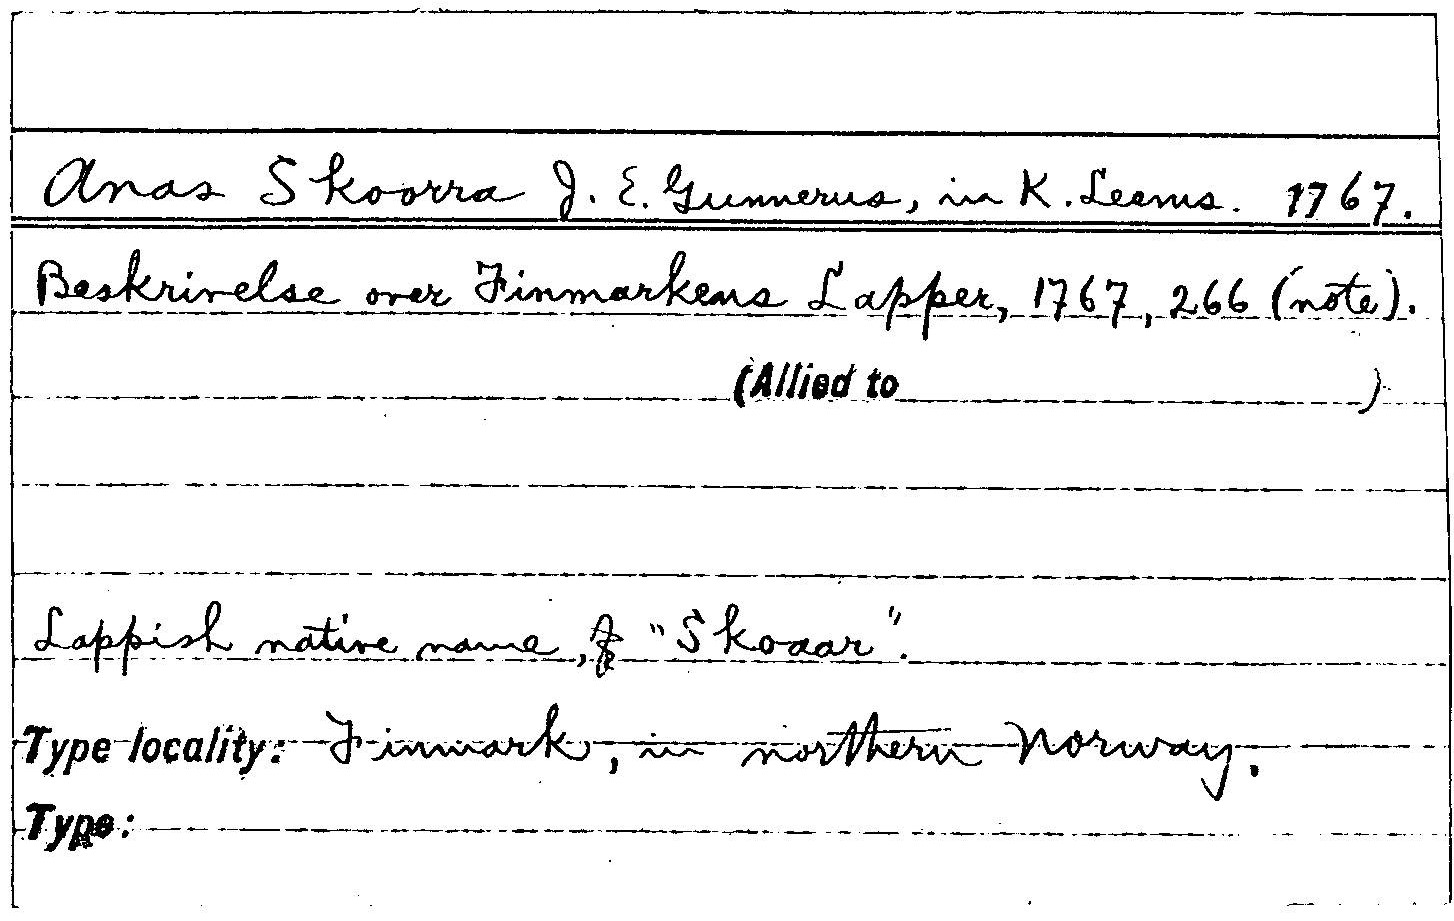 Anas Skoorra J. E. Gunnerus, in K. Leems. 1767.
Beskrivelse over Finmarkens Lapper, 1767, 266 (note).
(Allied to )
Lappish native name, "Skoaar".
Type locality: Finmark, in northern Norway.
Type: